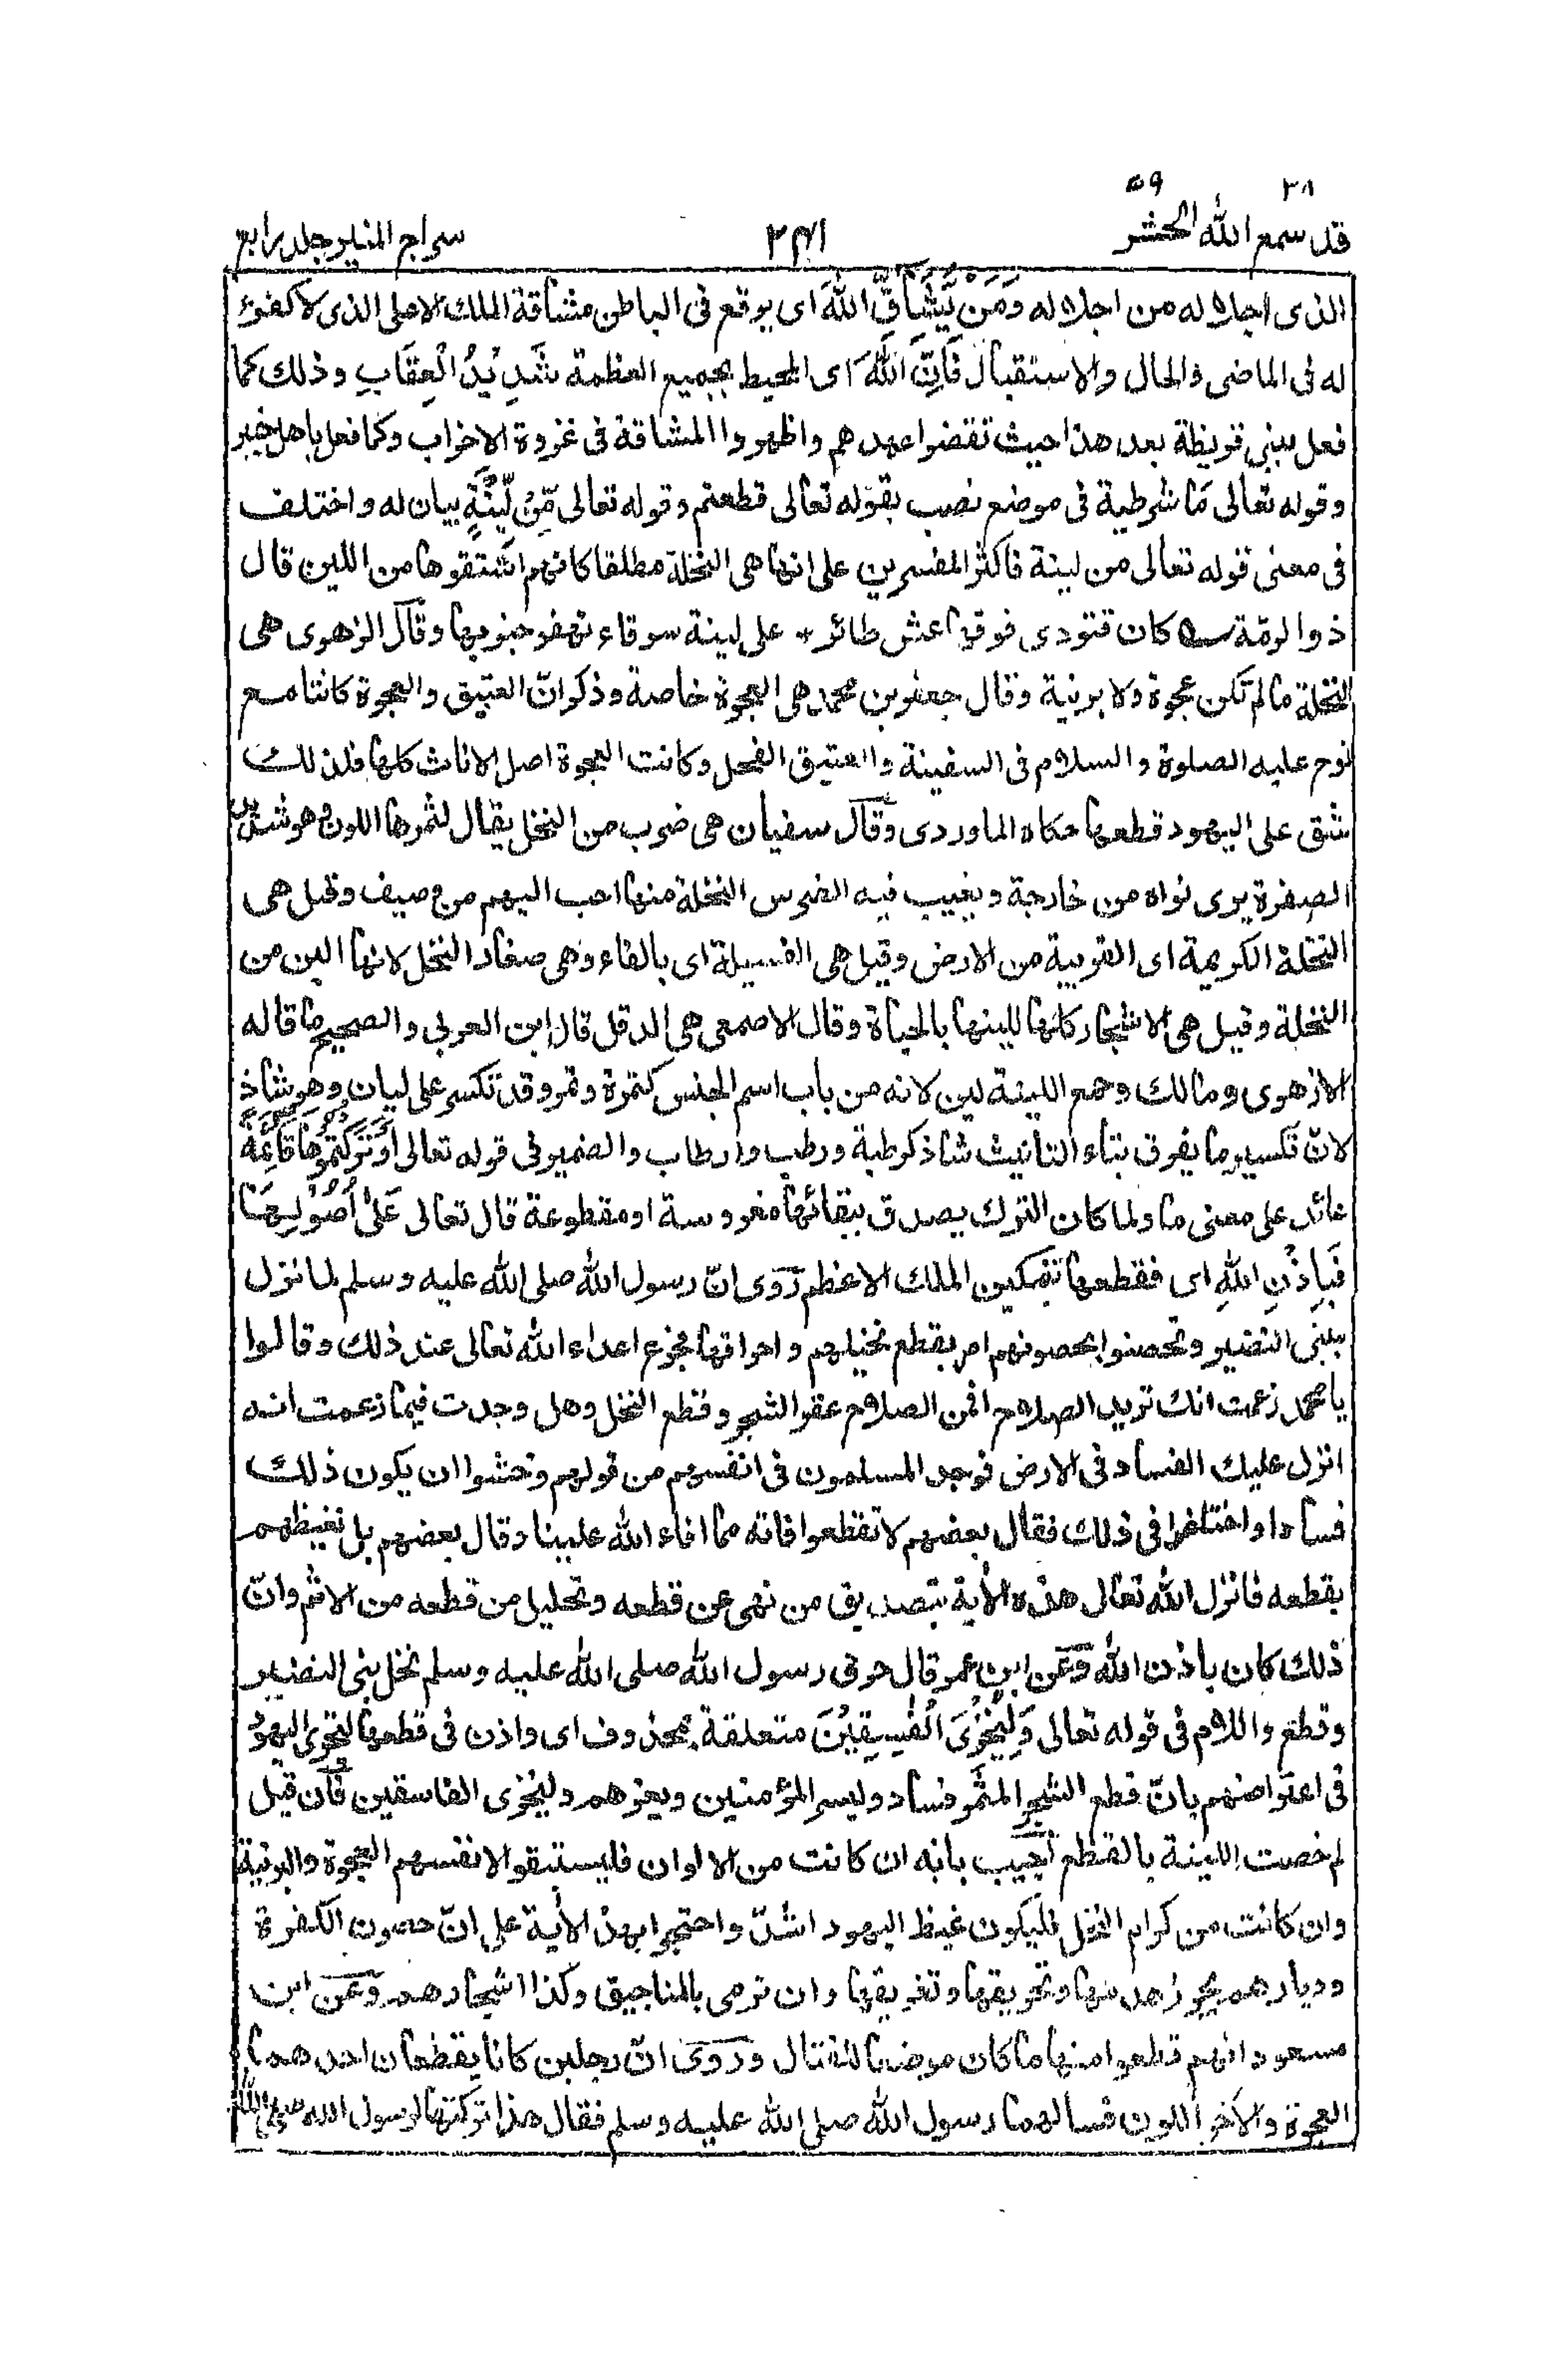 ٢٨ ٥٩
قد سمع الله الحشر ٢٤١ سراج المنير جلد رابع
الذى اجلاله من اجلاله وَمَنْ يُّشَاقِّ اللّٰهَ اى يوقع فى الباطن مشاقة الملك الاعلى الذى لا كفؤ
له فى الماضى والحال والاستقبال فَاِنَّ اللّٰهَ اى المحيط بجميع العظمة شَدِيْدُ الْعِقَابِ وذلك كما
فعل ببنى قريظة بعد هذا حيث نقضوا عهدهم واظهروا المشاقة فى غزوة الاحزاب وكما فعل باهل خيبر
وقوله تعالى مَا شرطية فى موضع نصب بقوله تعالى قطعتم وقوله تعالى مِّنْ لِّيْنَةٍ بيان له واختلف
فى معنى قوله تعالى من لينة فاكثر المفسرين على انها هى النخلة مطلقا كانهم اشتقوها من اللين قال
ذو الرمّة كان قتودى فوقها عش طائر * على لينة سوقاء تهفو جنوبها وقال الزهرى هى
النخلة مالم تكن عجوة ولا برنية وقال جعفر بن محمد هى العجوة خاصة وذكر انّ العتيق والعجوة كانتا مع
نوح عليه الصلوة والسلام فى السفينة والعتيق الفحل وكانت العجوة اصل الاناث كلها فلذلك
شق على اليهود قطعها حكاه الماوردى وقال سفيان هى ضرب من النخل يقال لثمرها اللون وهو شديد
الصفرة يرى نواه من خارجة ويغيب فيه الضرس النخلة منها احب اليهم من وصيف وقيل هى
النخلة الكريمة اى القريبة من الارض وقيل هى الفسيلة اى بالفاء وهى صغار النخل لانها الين من
النخلة وقيل هى الاشجار كلها للينها بالحياة وقال الاصمعى هى الدقل قال ابن العربى والصحيح ما قاله
الازهرى ومالك وجمع اللينة لين لانه من باب اسم الجنس كتمرة وتمر وقد تكسر على ليان وهو شاذ
لانّ تكسير ما يفرق بتاء التانيث شاذ كرطبة ورطب وارطاب والضمير فى قوله تعالى اَوْ تَرَكْتُمُوْهَا قَآئِمَةً
عائد على معنى ما ولما كان الترك يصدق ببقائها مغروسة او مقطوعة قال تعالى عَلٰى اُصُوْلِهَا
فَبِاِذْنِ اللّٰهِ اى فقطعها بتمكين الملك الاعظم روى انّ رسول الله صلى الله عليه وسلم لما نزل
ببنى النضير وتحصنوا بحصونهم امر بقطع نخيلهم واحراقها فجزع اعداء الله تعالى عند ذلك وقالوا
يا محمد زعمت انك تريد الصلاح افمن الصلاح عقر الشجر وقطع النخل وهل وجدت فيما زعمت انه
انزل عليك الفساد فى الارض فوجد المسلمون فى انفسهم من قولهم وخشوا ان يكون ذلك
فسادا واختلفوا فى ذلك فقال بعضهم لا تقطعوا فانه مما افاء الله علينا وقال بعضهم بل نغيظهم
بقطعه فانزل الله تعالى هذه الآية بتصديق من نهى عن قطعه وتحليل من قطعه من الاثم وانّ
ذلك كان باذن الله وعن ابن عمر قال حرق رسول الله صلى الله عليه وسلم نخل بنى النضير
وقطع واللام فى قوله تعالى وَلِيُخْزِىَ الْفٰسِقِيْنَ متعلقة بمحذوف اى واذن فى قطعها ليخزى اليهود
فى اعتراضهم بانّ قطع الشجر المثمر فساد وليسر المؤمنين ويعزهم وليخزى الفاسقين فان قيل
لم خصت اللينة بالقطع اجيب بانه ان كانت من الالوان فليستبقوا لانفسهم العجوة والبرنية
وان كانت من كرام النخل فليكون غيظ اليهود اشدّ واحتجوا بهذ الآية على انّ حصون الكفرة
وديارهم يجوز هدمها وتحريقها وتغريقها وان ترمى بالمناجيق وكذا اشجارهم وعن ابن
مسعود انهم قطعوا منها ما كان موضعا للقتال وروى انّ رجلين كانا يقطعان احدهما
العجوة والآخر اللون فسالهما رسول الله صلى الله عليه وسلم فقال هذا تركتها لرسول الله صلى الله